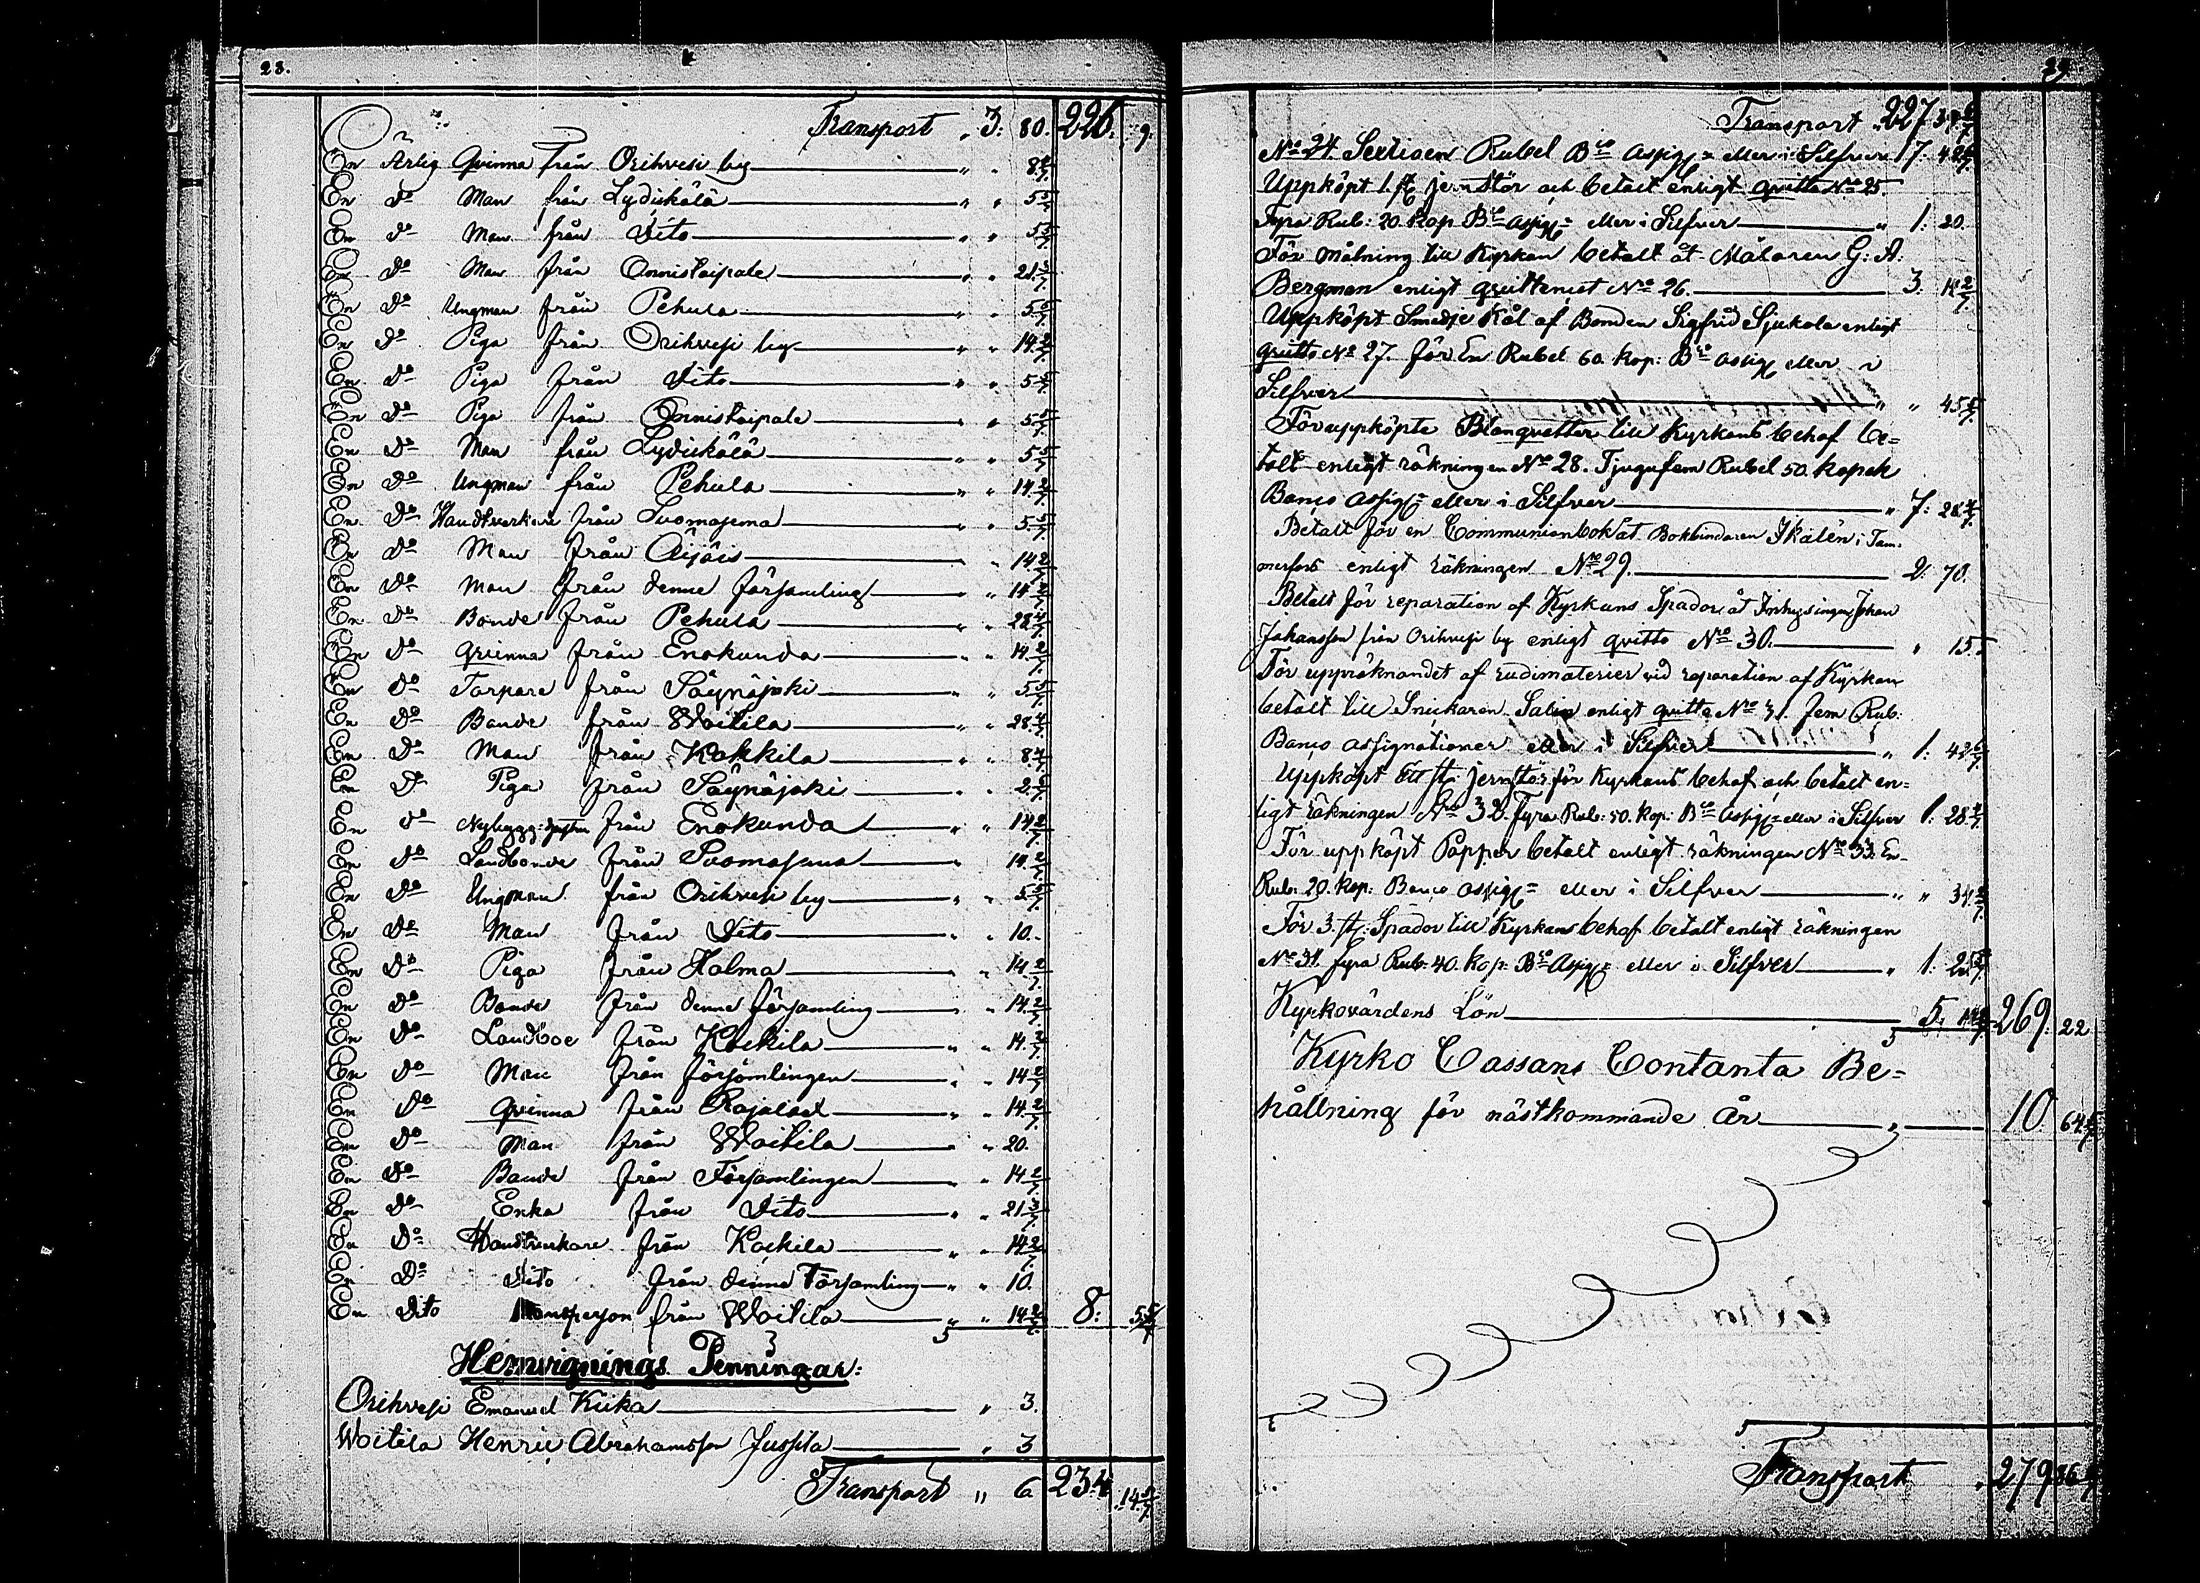 23.
Transport „ 3: 80. 226. 9.
En Ärlig Qvinna från Orihvesi by „ „ 8 4/7
En do Man från Lydikälä „ „ 5 5/7
En do Man från Dito „ „ 5 5/7
En do Man från Onnistaipale „ „ 21 3/7
En do Ungman från Pehula „ „ 5 5/7
En do Piga från Orihvesi by „ „ 14 2/7
En do Piga från Dito „ „ 5 5/7
En do Piga från Onnistaipale „ „ 5 5/7
En do Man från Lydikälä „ „ 5 5/7
En do Ungman från Pehula „ „ 14 2/7
En do Handtverkare från Suomasema „ „ 5 5/7
En do Man från „ 14 2/7
En do Man från denne församling „ „ 14 2/7
En do Bonde från Pehula „ „ 28 4/7
En do Qvinna från Enokunda „ „ 14 2/7
En do Torpare från Säynäjoki „ „ 5 5/7
En do Bonde från Woitila „ „ 28 4/7
En do Man från Kokkila „ „ 8 4/7
En do Piga från Säynäjoki „ „ 2 6/7
En do från Enokunda „ „ 14 2/7
En do Landbonde från „ „ 14 2/7
En do Ungman från Orihvesi by „ „ 5 5/7
En do Man från Dito „ „ 10.
En do Piga från Holma „ „ 14 2/7
En do Bonde från denne församling „ „ 14 2/7
En do Landboe från Kockila „ „ 14 2/7
En do Man från församlingen „ „ 14 2/7
En do Qvinna från „ „ 14 2/7
En do Man från Woitila „ „ 20.
En do Bonde från Församlingen „ „ 14 2/7
En do Enka från Dito „ „ 21 3/7
En do Handtverkare från Kockila „ „ 14 2/7
En do Dito från denne Församling „ „ 10.
En Dito Mansperson från Woitila „ „ 14 2/7 8: 5 5/7
Hemvignings Penningar:
Orihvesi Emanuel Kiika „ 3.
Woitila Henric Abrahamsson Jussila „ 3
Transport „ 6 234 „ 14 5/7
Transport „ 227 37
No 24 Sextioen Rubel Bco Assig: eller i Silfver 17: 42 6/7
Uppköpt 1. st jernstör och betalt enligt qvitto No 25.
Fyra Rub: 20 kop Bco Assig: eller i Silfver „ 1: 20.
För målning till Kyrkan betalt åt Målaren G: A:
Bergman enligt qvittencet No 26. 3. 14 2/7
Uppköpt Smedje Kål af Bonden Sigfrid Sjukola enligt
qvitto No 27. för En Rubel 60. kop: Bco Assig eller i
Silfver „ „ 45 5/7
För uppköpte Blanquetter till Kyrkans behof be=
talt enligt räkningen No 28. Tjugufem Rubel 50. kopek
Banco Assig: eller i Silfver „ 7: 28 4/7
Betalt för en Communionbok åt Bokbindaren Ikalén i Tam-
merfors enligt räkningen No 29. 2: 70.
Betalt för reparation af Kyrkans Spador åt Inhysingen Johan
Johansson från Orihvesi by enligt qvitto No 30. „ 15.
För uppräknandet af rudimaterier vid reparation af Kyrkan
betalt till Snickaren Salin enligt qvitto No 31. fem Rub:
Banco Assignationer eller i Silfver „ 1: 42 6/7
Uppköpt Ett st. jernstör för Kyrkans behof och betalt en=
ligt räkningen No 32. Fyra Rub: 50. kop: Bco Assig: eller i Silfver 1: 28 4/7
För uppköpt Papper betalt enligt räkningen No 33. En
Rub: 20. kop: Banco Assig: eller i Silfver „ „ 34 2/7
För 3. st. Spador till Kyrkans behof betalt enligt räkningen
No 34. fyra Rub: 40. kop: Bco Assig: eller i Silfver „ 1: 25 5/7
Kyrkovärdens Lön 5: 14 2/7 269: 22
Kyrko Cassans Contanta Be=
hållning för nästkommande år „ 10 64
Transport „ 279 86